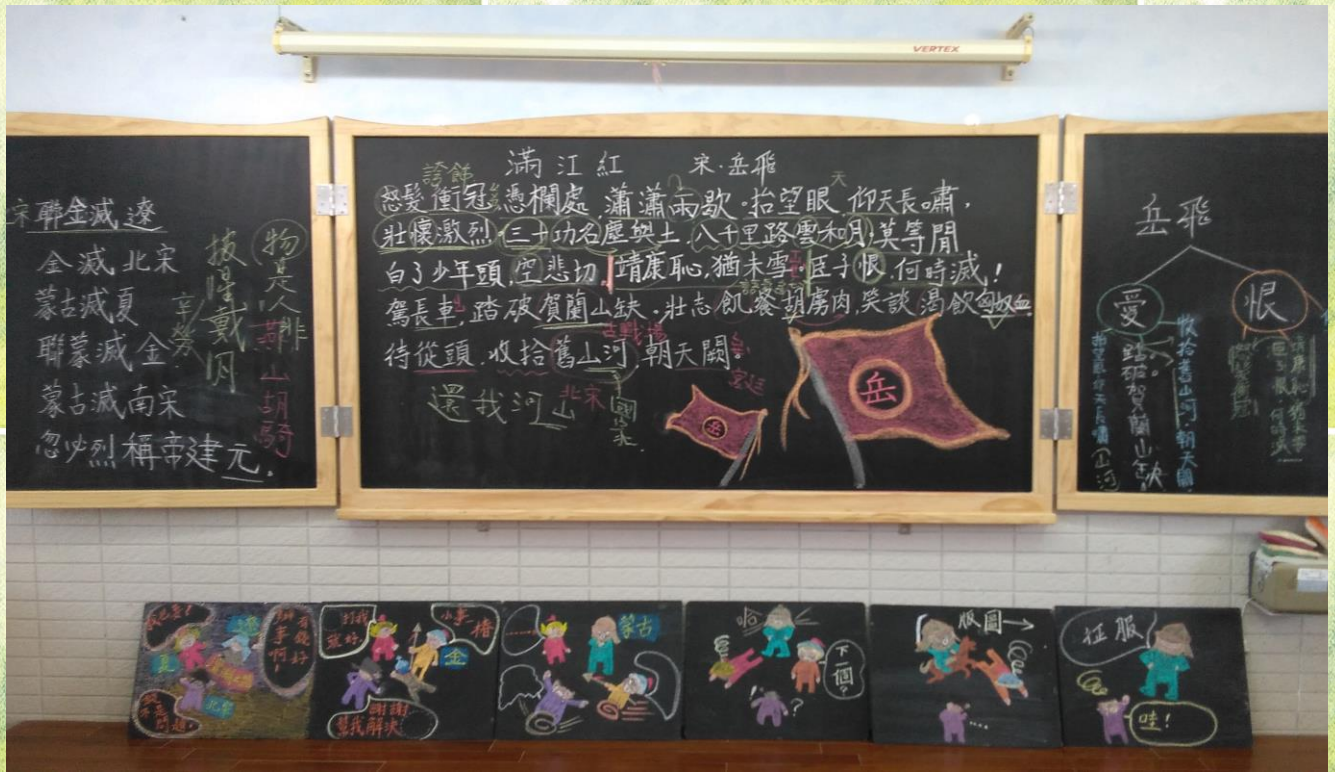 VERTEX
宋聯金滅遼
金滅北宋
蒙古滅夏
聯蒙滅金
蒙古滅南宋
忽必烈稱帝建元。
辛勞
披星戴月
物是人非
燕山胡騎
滿江紅 宋·岳飛
誇飾
天
怒髮衝冠,憑欄處,瀟瀟雨歇。抬望眼,仰天長嘯,
壯懷激烈。三十功名塵與土,八千里路雲和月,莫等閒
白了少年頭,空悲切。靖康恥,猶未雪。臣子恨,何時滅!
駕長車,踏破賀蘭山缺。壯志飢餐胡虜肉,笑談渴飲匈奴血
古戰場
待從頭,收拾舊山河,朝天闕。
宮廷
還我河山
北宋
國家
岳
岳
岳飛
愛
恨
收拾舊山河,朝天闕。
踏破賀蘭山缺。
抬望眼仰天長嘯(山河)
靖康恥猶未雪
臣子恨何時滅
遼
夏
北宋
辦事啊
有錢好
打我就好
小熏椿
金
謝謝幫我解決
………
蒙古
哈
下一個?
?
版圖→
….
征服
哇!